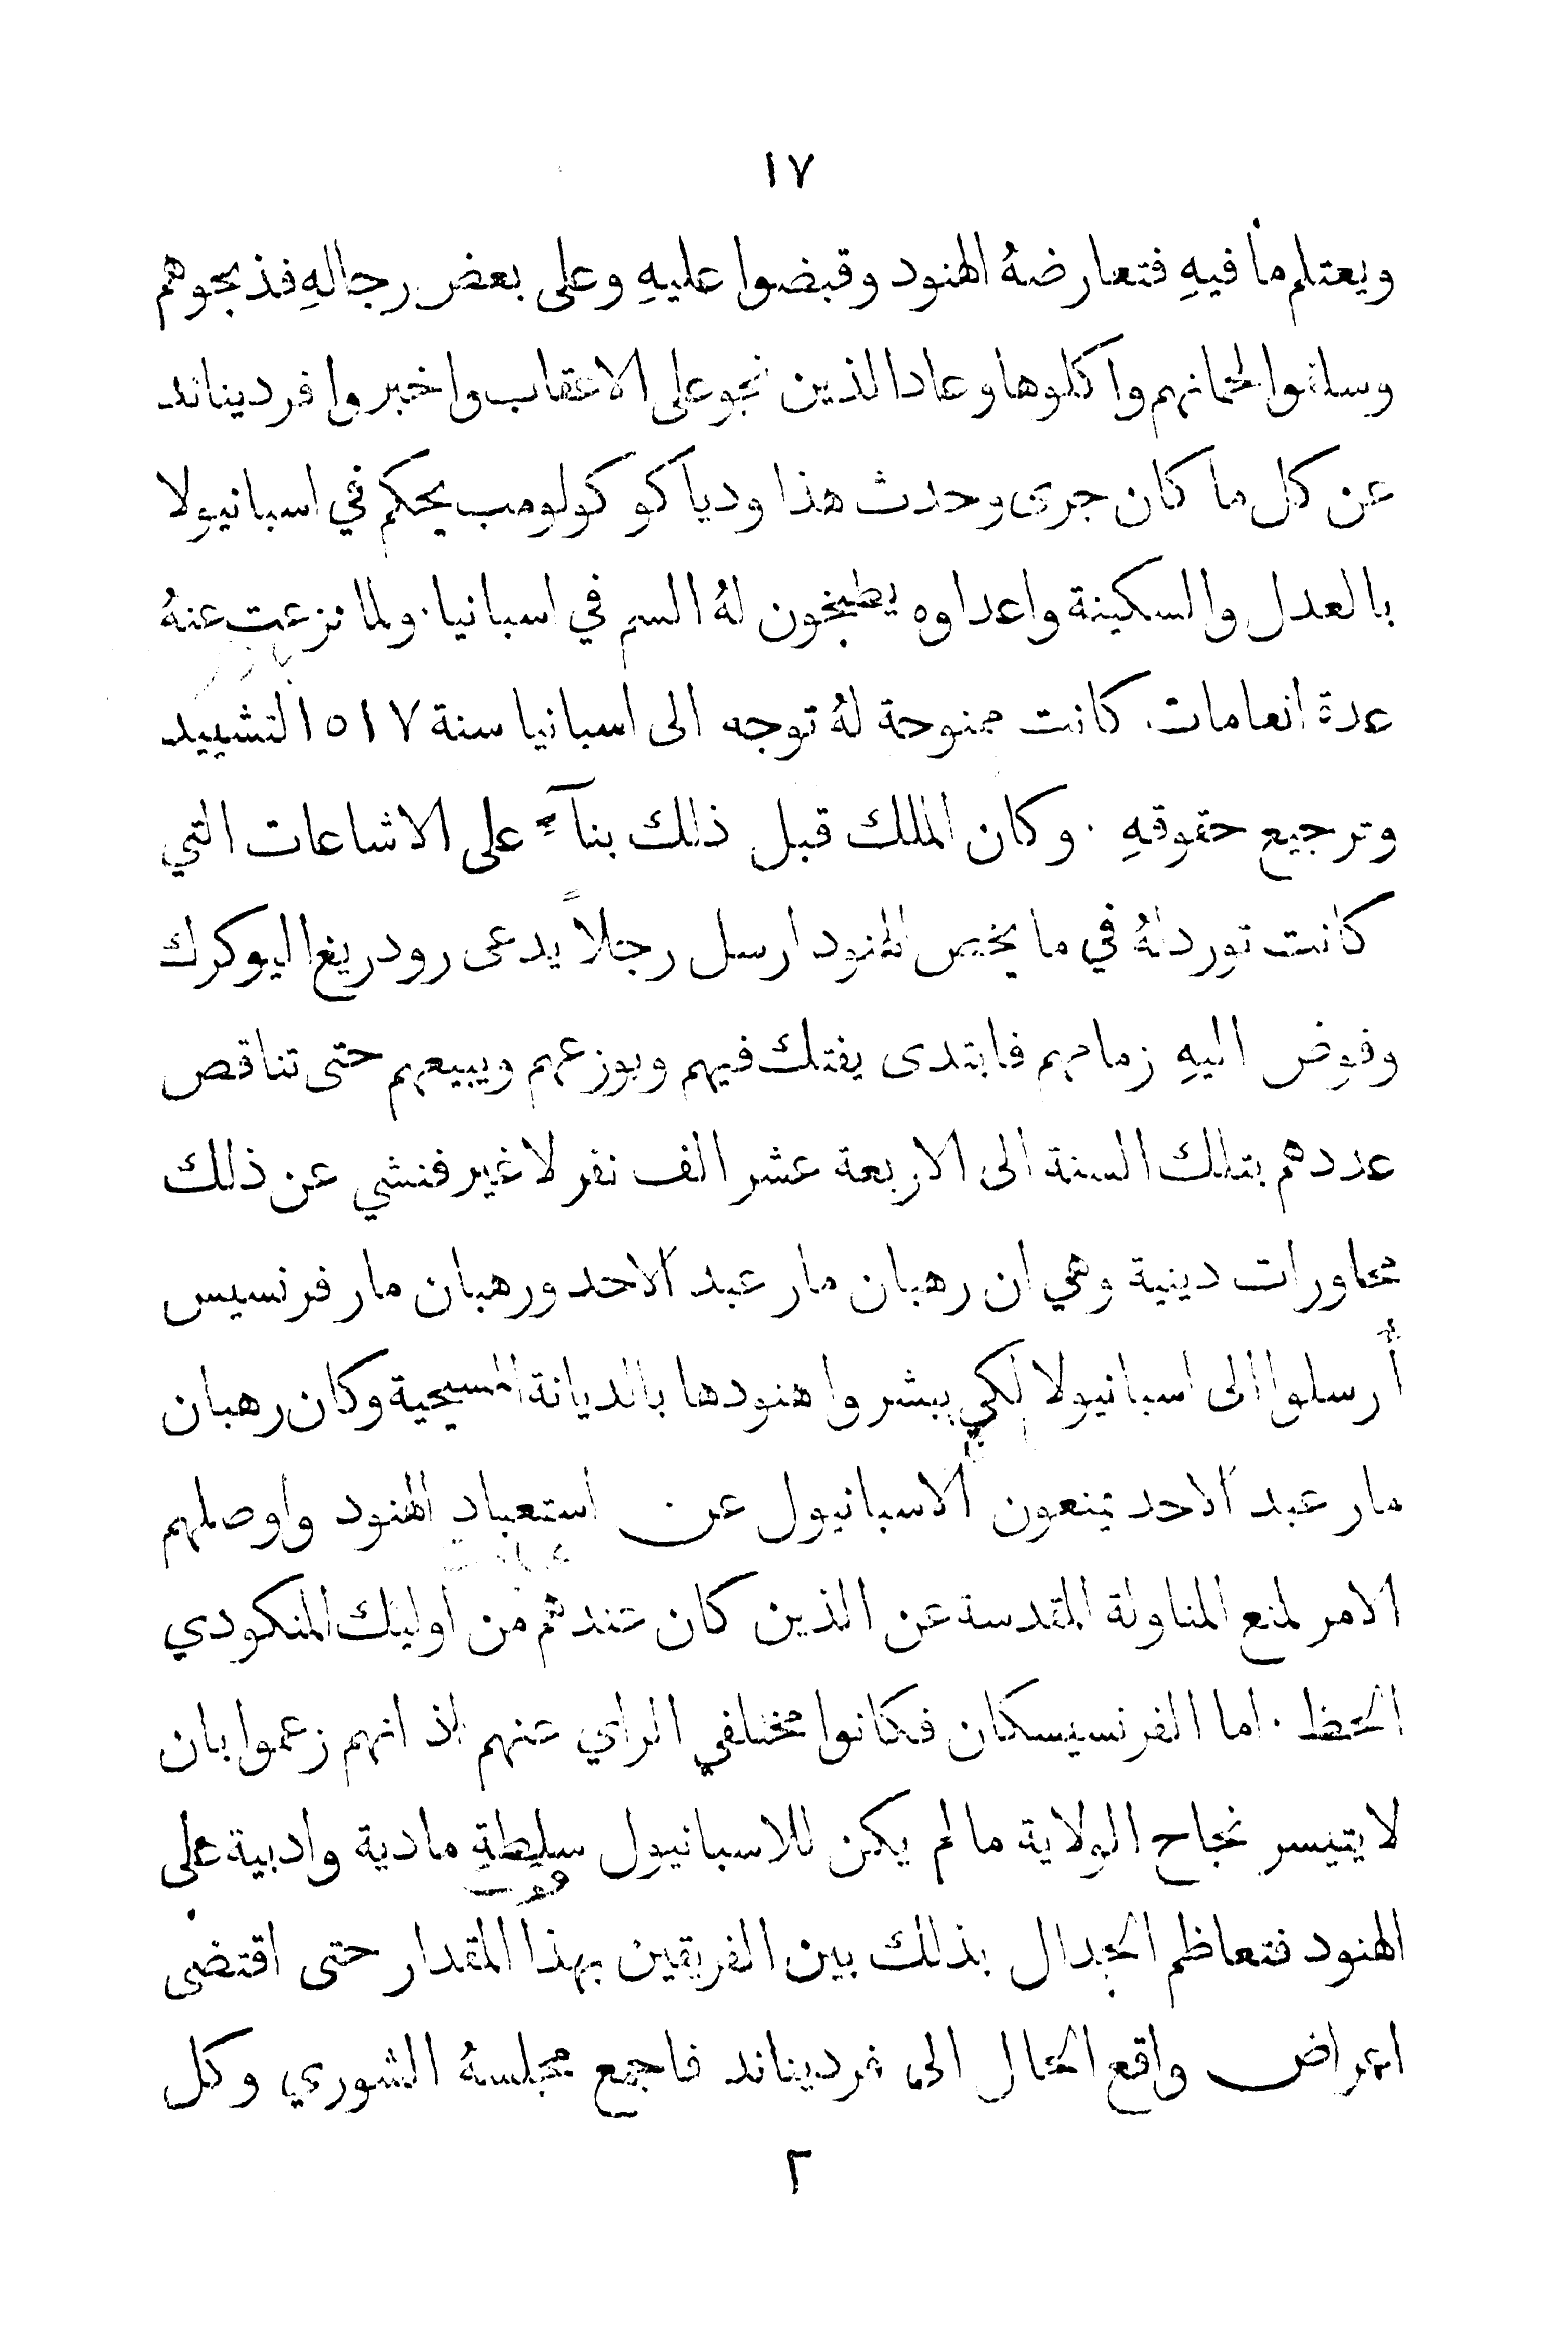 ١٧
ويعتلم ما فيهِ فتعارضهُ الهنود وقبضوا عليهِ وعلى بعض رجالهِ فذبحوهم
وسلقوا لحمانهم واكلوها وعاد الذين نجو على الاعقاب واخبروا فرديناند
عن كل ما كان جرى وحدث هذا ودياكو كولومب يحكم في اسبانيولا
بالعدل والسكينة واعداوه يطبخون لهُ السم في اسبانيا. ولما نزعت عنهُ
عدة انعامات كانت ممنوحة لهُ توجه الى اسبانيا سنة ١٥١٧ لتشييد
وترجيع حقوقهِ . وكان الملك قبل ذلك بنآءً على الاشاعات التي
كانت تورد لهُ في ما يخص الهنود ارسل رجلاً يدعى رودريغ اليوكرك
وفوض اليهِ زمامهم فابتدى يفتك فيهم ويوزعهم ويبيعهم حتى تناقص
عددهم بتلك السنة الى الاربعة عشر الف نفر لا غير فنشي عن ذلك
محاورات دينية وهي ان رهبان مار عبد الاحد ورهبان مار فرنسيس
أرسلوا الى اسبانيولا لكي يبشروا هنودها بالديانة المسيحية وكان رهبان
مار عبد الاحد يمنعون الاسبانيول عن استعباد الهنود واوصلهم
الامر لمنع المناولة المقدسة عن الذين كان عندهم من اوليك المنكودي
الحظ . اما الفرنسيسكان فكانوا مختلفي الراي عنهم اذ انهم زعموا بان
لا يتيسر نجاح الولاية ما لم يكن للاسبانيول سلطة مادية وادبية على
الهنود فتعاظم الجدال بذلك بين الفريقين بهذا المقدار حتى اقتضى
اعراض واقع الحال الى فرديناند فاجمع مجلسهُ الشوري وكل
٢